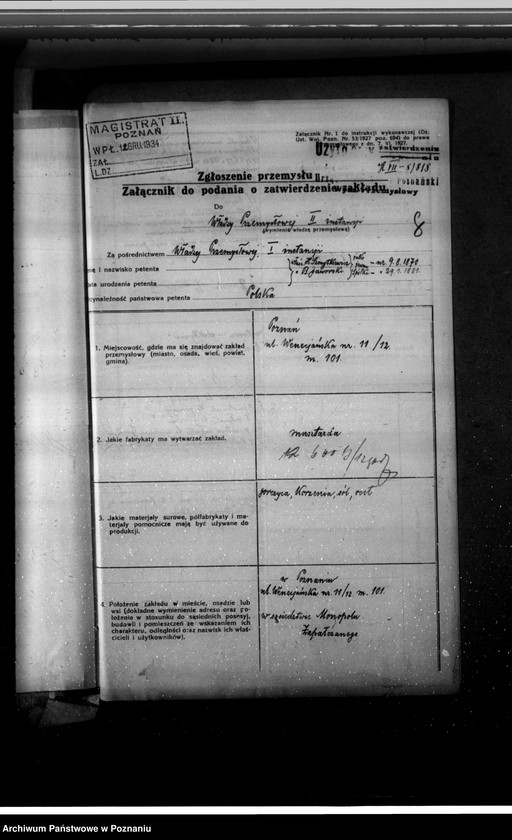 MAGISTRAT II.
POZNAŃ
WPŁ. 12. GRU. 1934
ZAŁ.
L.DZ.
Załącznik Nr. 1 do instrukcji wykonawczej (Dz.
Ust. Woj. Pozn. Nr. 53/1927 poz. 694) do prawa
przemysłowego z dn. 7. VI. 1927.
zatwierdzeniu
Zgłoszenie przemysłu
Poznański
Załącznik do podania o zatwierdzenie zakładu
Do
Władzy Przemysłowej II instancji
(wymienia władzę przemysłową)
8
Za pośrednictwem Władzy Przemysłowej I instancji
i nazwisko petenta
B. Jaworski
ur. 9.8.1870
urodzenia petenta
29.1.1881
przynależność państwowa petenta Polska
1. Miejscowość, gdzie ma się znajdować zakład
przemysłowy (miasto, osada, wieś, powiat,
gmina).
Poznań
ul. Wenecjańska nr. 11/12.
m. 101.
2. Jakie fabrykaty ma wytwarzać zakład.
musztarda
12 600
3. Jakie materjały surowe, półfabrykaty i ma-
terjały pomocnicze mają być używane do
produkcji.
gorczyca, korzenia, sól, ocet
4. Położenie zakładu w mieście, osadzie lub
wsi (dokładne wymienienie adresu oraz po-
łożenia w stosunku do sąsiednich posesyj,
budowli i pomieszczeń ze wskazaniem ich
charakteru, odległości oraz nazwisk ich właś-
cicieli i użytkowników).
w Poznaniu
ul. Wenecjańska nr. 11/12. m. 101.
w sąsiedztwie Monopolu
Zapałczanego
Archiwum Państwowe w Poznaniu